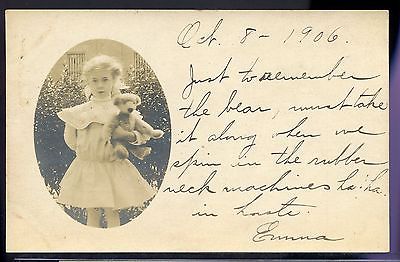 Oct. 8 - 1906.
Just to remember
the bear, must take
it along when we
spin in the rubber
neck machines ha-ha.
in haste.
Emma